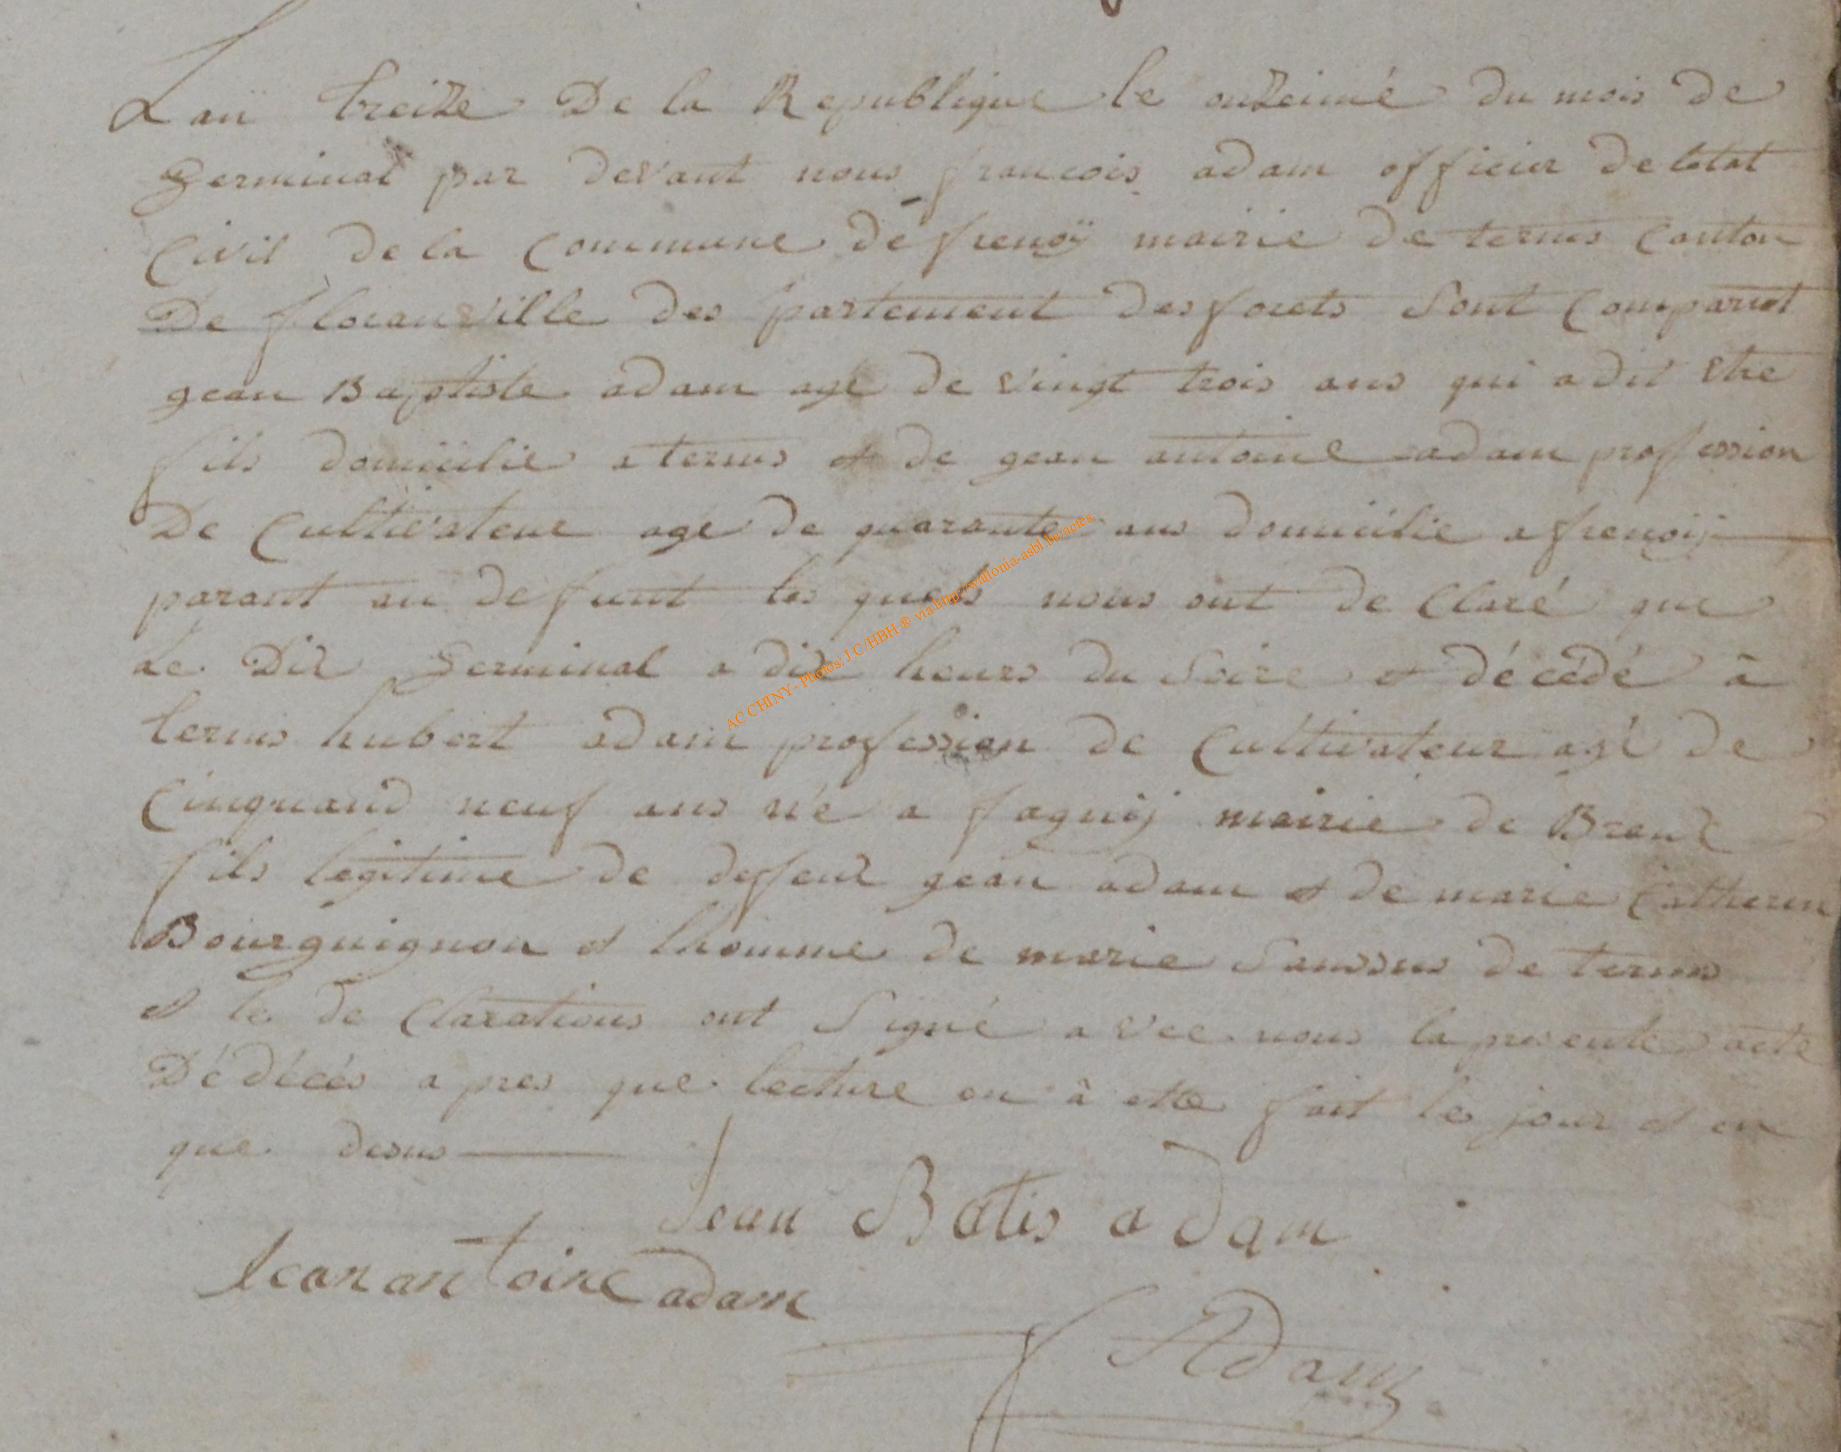 Lan treize De la Republique le onzeimé du mois de
Germinal par devant nous francois adam officier de letat
Civil de la Commune de frenoÿ mairie de termes Canton
De floranville des partement des forets Sont Comparut
gean Baptiste adam age de vingt trois ans qui a dit etre
fils domicilie a termes et de gean antoine adam profession
De Cultivateur agé de quarante ans domicilie a frenoij
parant au defunt les quels nous ont de Claré que
Le Dix Germinal a dix heurs du Soire et décédé à
termes hubert adam profession de Cultivateur agé de
Cinquand neuf ans né a fagnij mairie de Breux
fils legitime de deffeux gean adam et de marie Catherin
Bourguignon et lhomme de marie Saussus de termes
et le de Clarations ont Signé avec nous la presente acte
Dé décés apres que lecture on à ette fait les jour et en
que desus
Jean Batis adam
Jean antoine adam
f Adam
AC CHINY - Photos J C/HBH ® via http://wallonia-asbl.be/actes